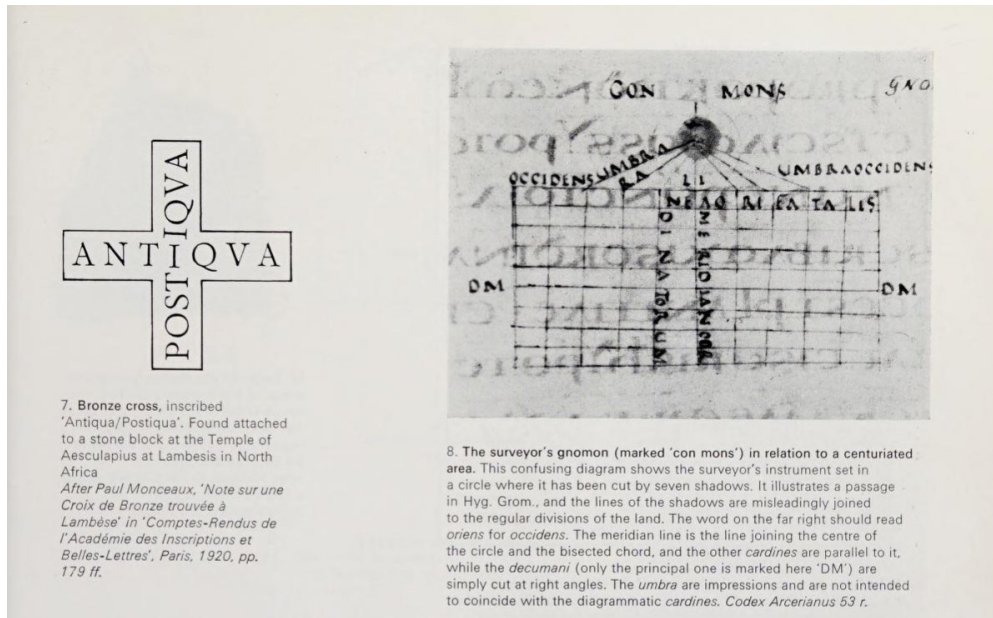 ANTIQVA
POSTIQVA
7. Bronze cross, inscribed
'Antiqua/Postiqua'. Found attached
to a stone block at the Temple of
Aesculapius at Lambesis in North
Africa
After Paul Monceaux, 'Note sur une
Croix de Bronze trouvée à
Lambèse' in 'Comptes-Rendus de
l'Académie des Inscriptions et
Belles-Lettres', Paris, 1920, pp.
179 ff.
CON MONS GNO
OCCIDENS UMBRA UMBRAOCCIDENS
RA
LI
NEAO RI EA TA LIS
DM DM
8. The surveyor's gnomon (marked 'con mons') in relation to a centuriated
area. This confusing diagram shows the surveyor's instrument set in
a circle where it has been cut by seven shadows. It illustrates a passage
in Hyg. Grom., and the lines of the shadows are misleadingly joined
to the regular divisions of the land. The word on the far right should read
oriens for occidens. The meridian line is the line joining the centre of
the circle and the bisected chord, and the other cardines are parallel to it,
while the decumani (only the principal one is marked here 'DM') are
simply cut at right angles. The umbra are impressions and are not intended
to coincide with the diagrammatic cardines. Codex Arcerianus 53 r.